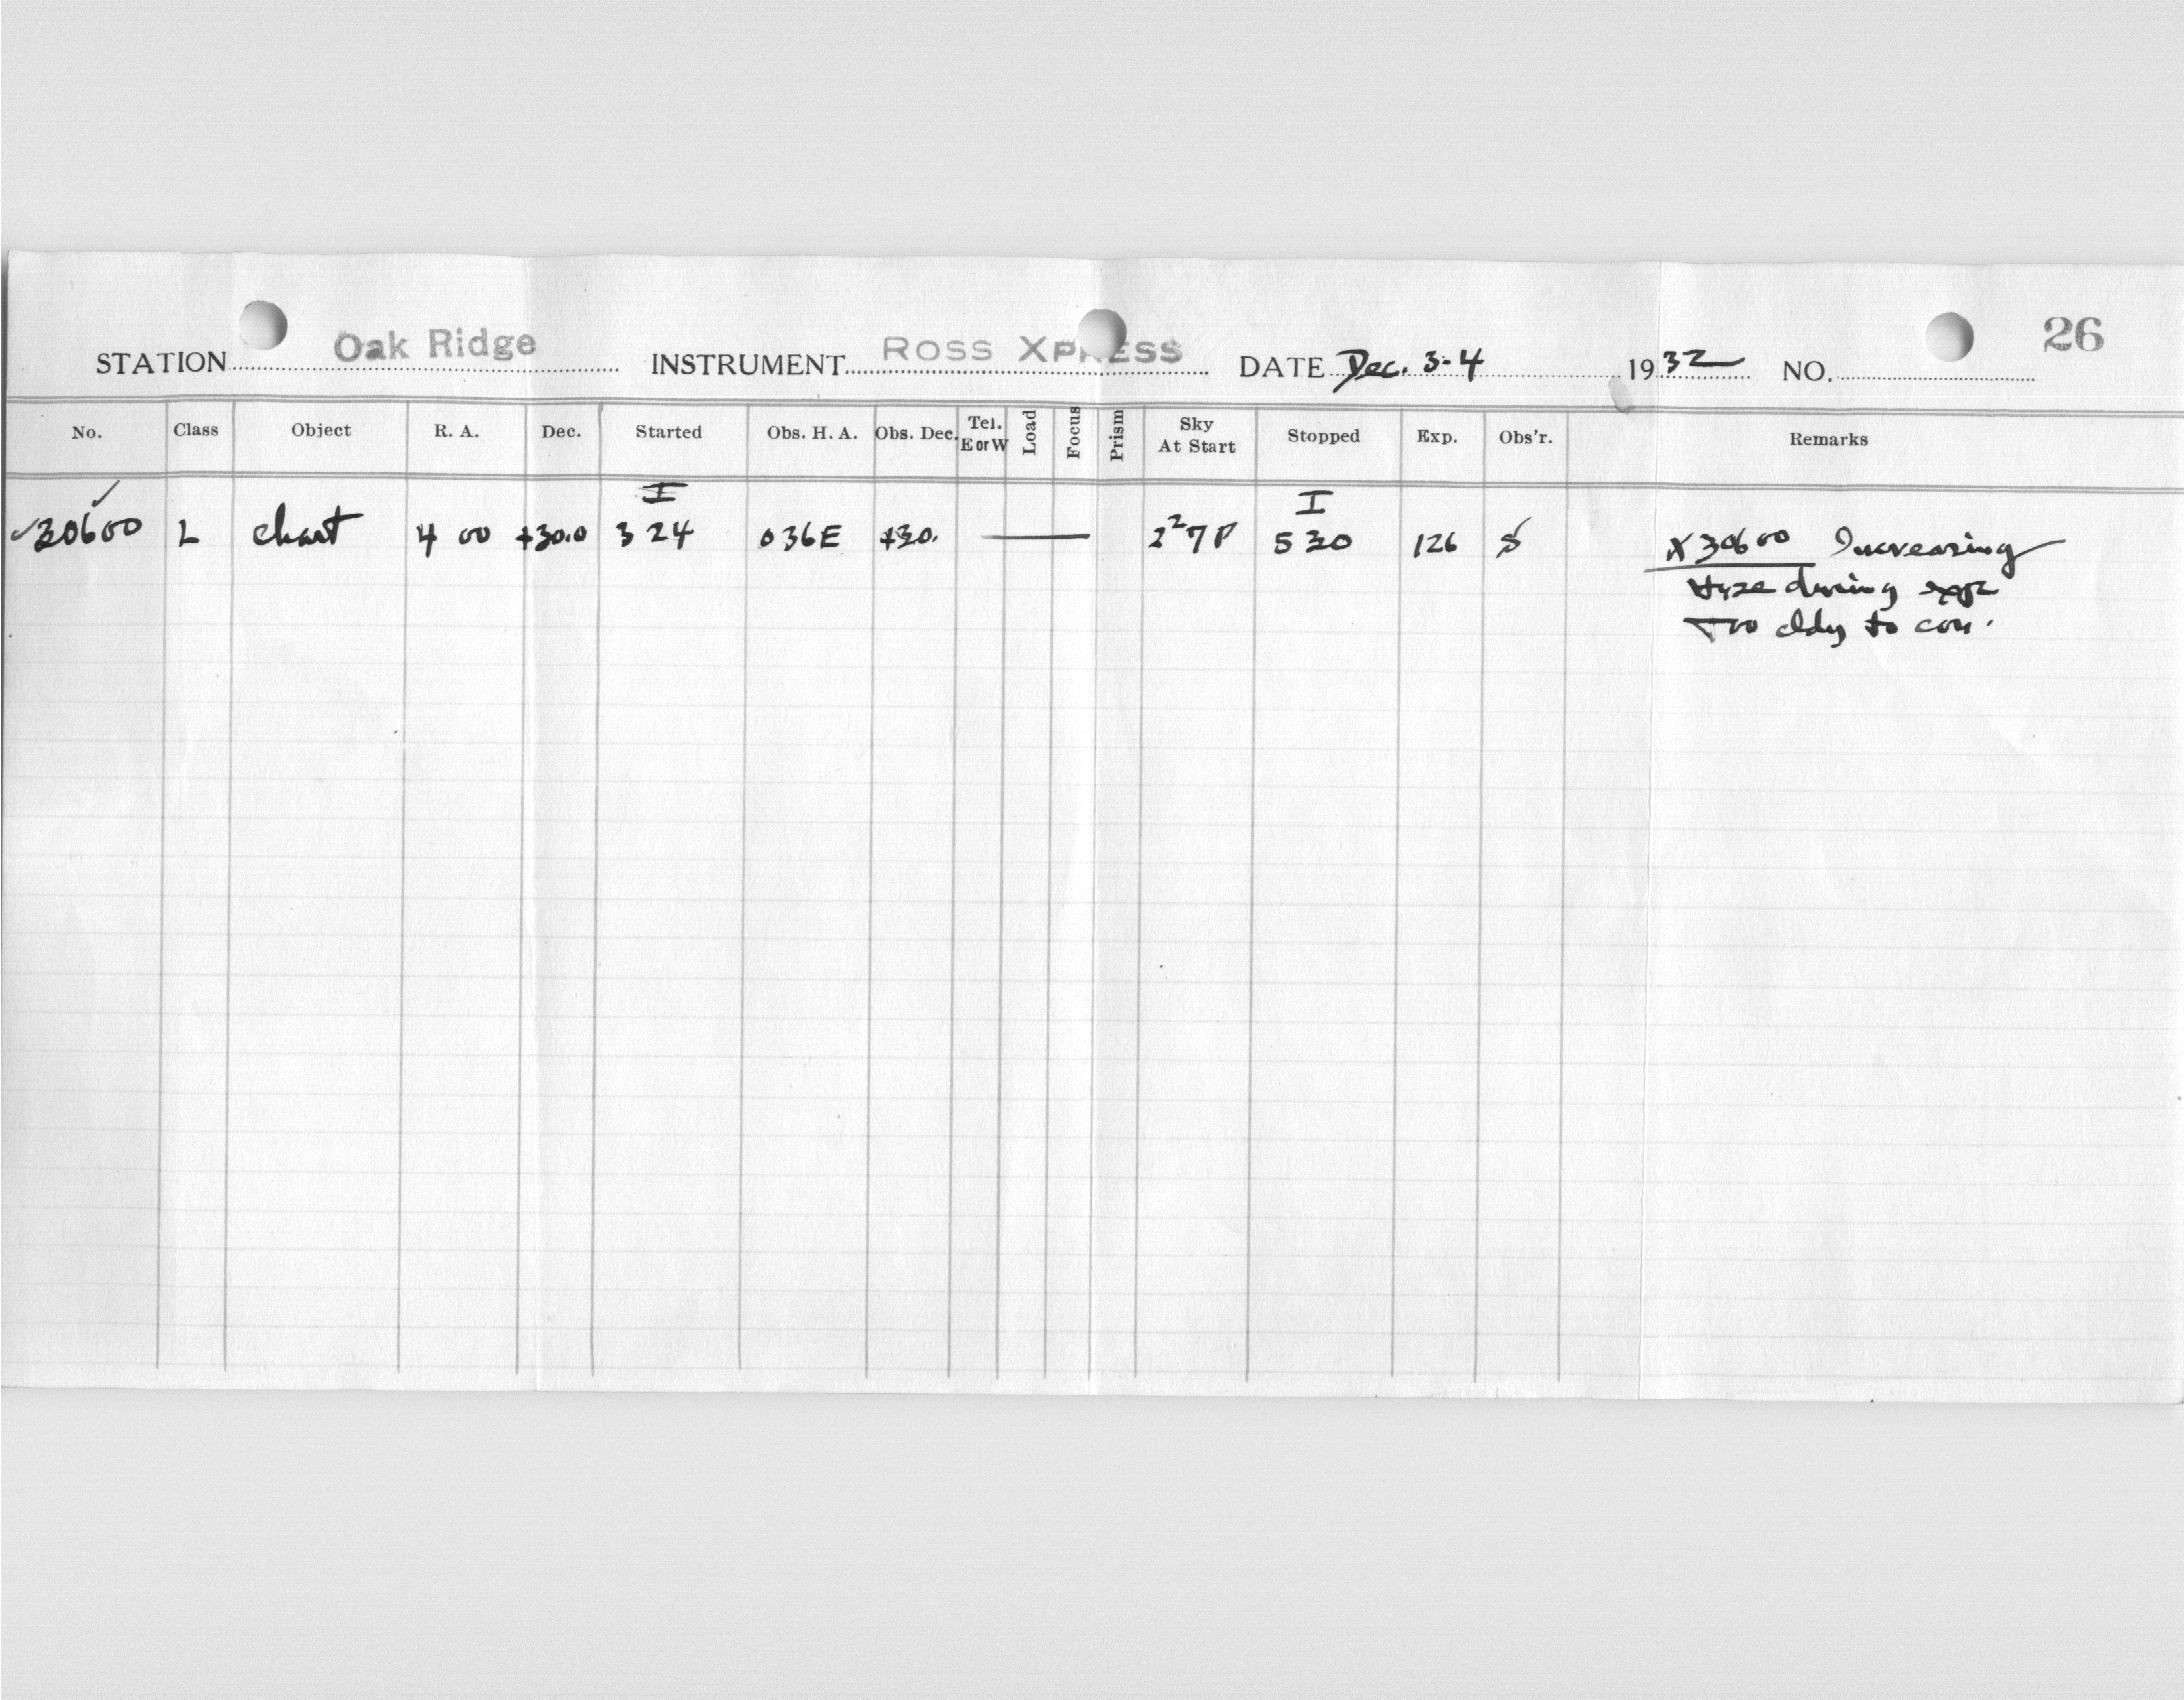 26
STATION Oak Ridge INSTRUMENT ROSS XPRESS DATE Dec. 3-4 1932 NO.
No. Class Object R. A. Dec. Started Obs. H. A. Obs. Dec. Tel. E or W Load Focus Prism Sky At Start Stopped Exp. Obs'r. Remarks
I I
✓30600 L chart 4 00 +30.0 3 24 0 36E +30. 2²7P 5 30 126 S X30600 Increasing
Haze during exp
Too cldy to con.